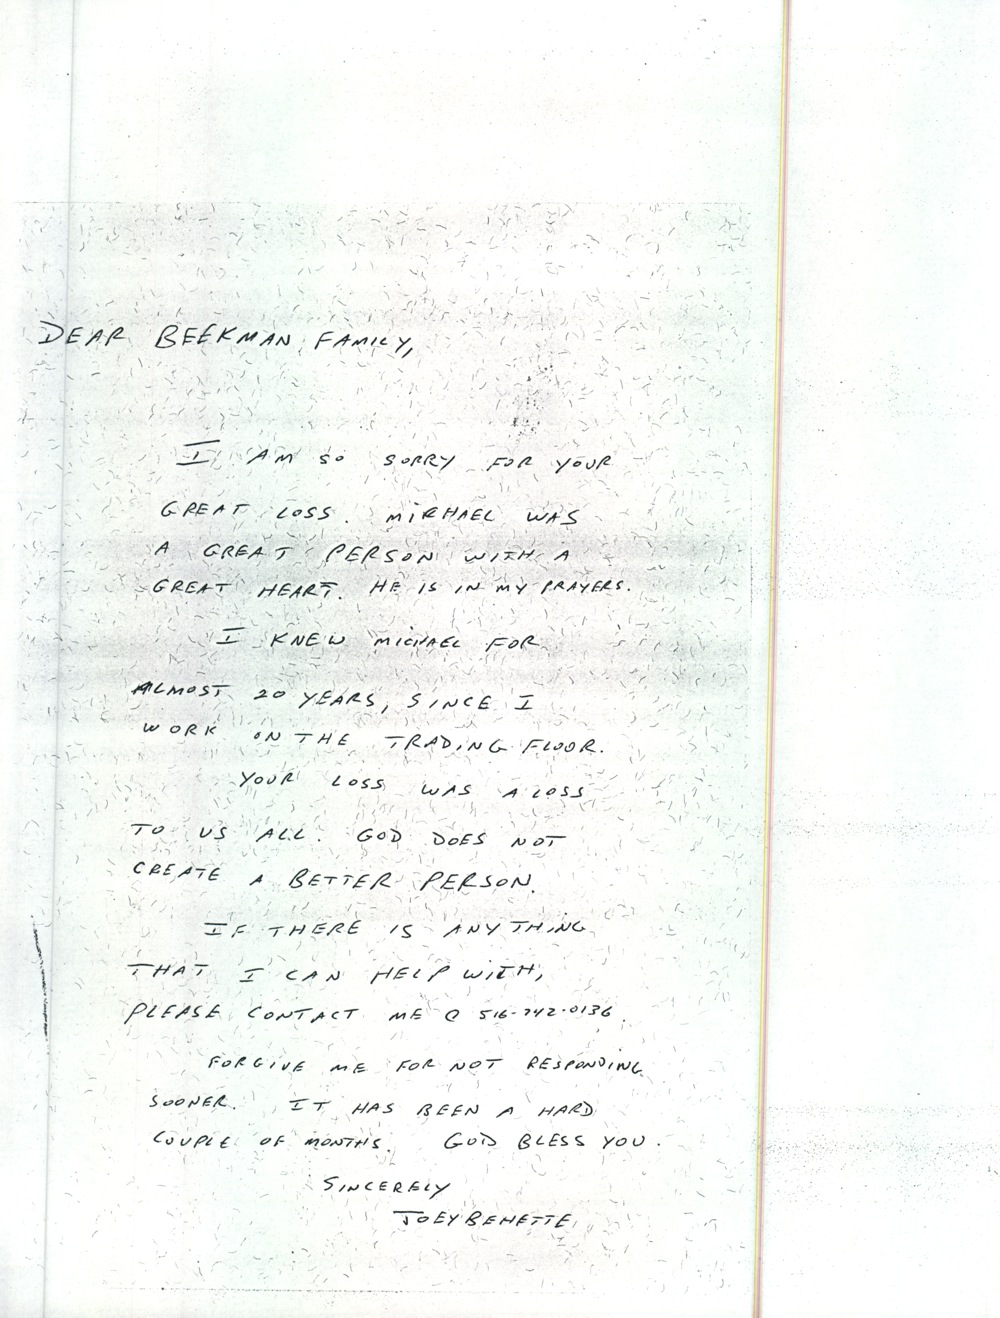 DEAR BEEKMAN FAMILY,
I AM SO SORRY FOR YOUR
GREAT LOSS. MICHAEL WAS
A GREAT PERSON WITH A
GREAT HEART. HE IS IN MY PRAYERS.
I KNEW MICHAEL FOR
ALMOST 20 YEARS, SINCE I
WORK ON THE TRADING FLOOR.
YOUR LOSS WAS A LOSS
TO US ALL. GOD DOES NOT
CREATE A BETTER PERSON.
IF THERE IS ANYTHING
THAT I CAN HELP WITH,
PLEASE CONTACT ME @ 516-742-0136.
FORGIVE ME FOR NOT RESPONDING
SOONER. IT HAS BEEN A HARD
COUPLE OF MONTHS. GOD BLESS YOU.
SINCERELY
JOEY BENETTE